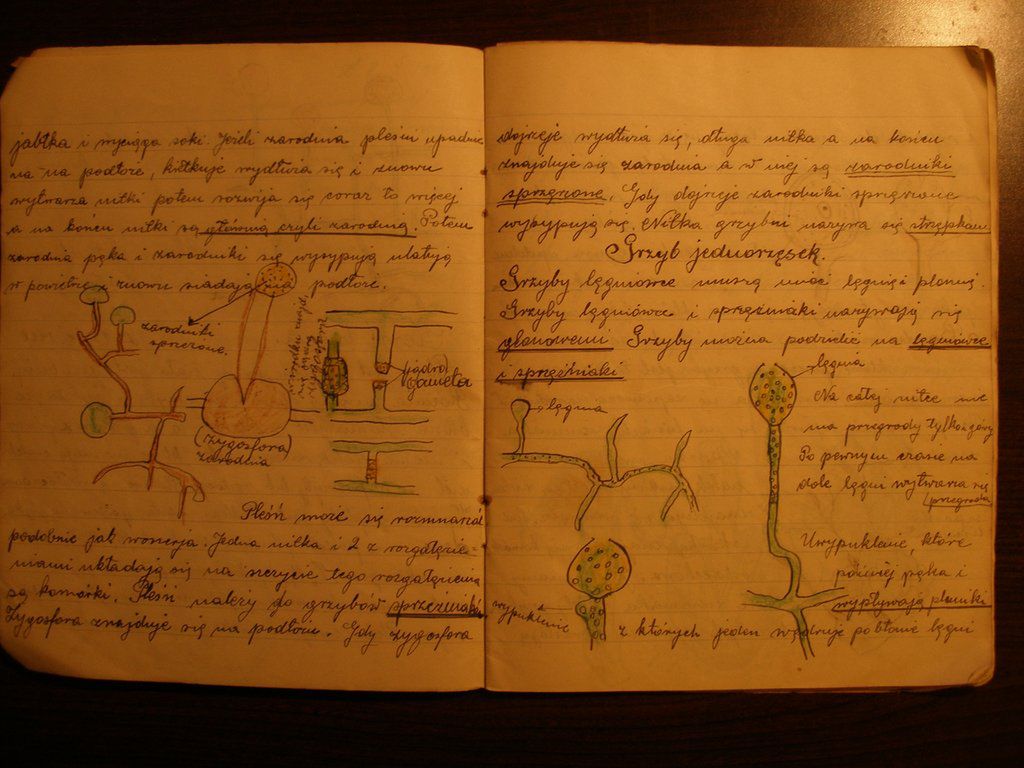 jabłka i wyciąga soki. Jeżeli zarodnia pleśni upadnie
na na podłoże, kiełkuje wydłuża się i znowu
wytwarza nitki potem rozwija się coraz to więcej
a na końcu nitki są główną czyli zarodnią. Potem
zarodnia pęka i zarodniki się wysypują ulatują
w powietrze i znowu siadają na podłoże.
zarodniki
sprzężone.
zygospora
jądro
gameta
(zygosfora)
zarodnia
Pleśń może się rozmnażać
podobnie jak woszerja. Jedna nitka i 2 z rozgałęzie-
niami układają się na szczycie tego rozgałęzienia
są komórki. Pleśń należy do grzybów sprzężniaków
Zygosfora znajduje się na podłożu. Gdy zygosfora
dojrzeje wydłuża się, długa nitka a na końcu
znajduje się zarodnia a w niej są zarodniki
sprzężone. Gdy dojrzeje zarodniki sprzężone
wysypują się. Nitka grzybni nazywa się strzępkan
Grzyb jednorzęsek.
Grzyby lęgniowce muszą mieć lęgnię i plemię.
Grzyby lęgniówce i sprzężniaki nazywają się
glonowemi Grzyby można podzielić na lęgniówce
i sprzężniaki
lęgnia
lęgnia
Na całej nitce nie
ma przegrody tylko u góry
Po pewnym czasie na
dole lęgni wytwarza się
przegroda
Uwypuklenie, które
później pęka i
wypływają plemniki
wypuklenie
z których jeden wędruje po błonie lęgni